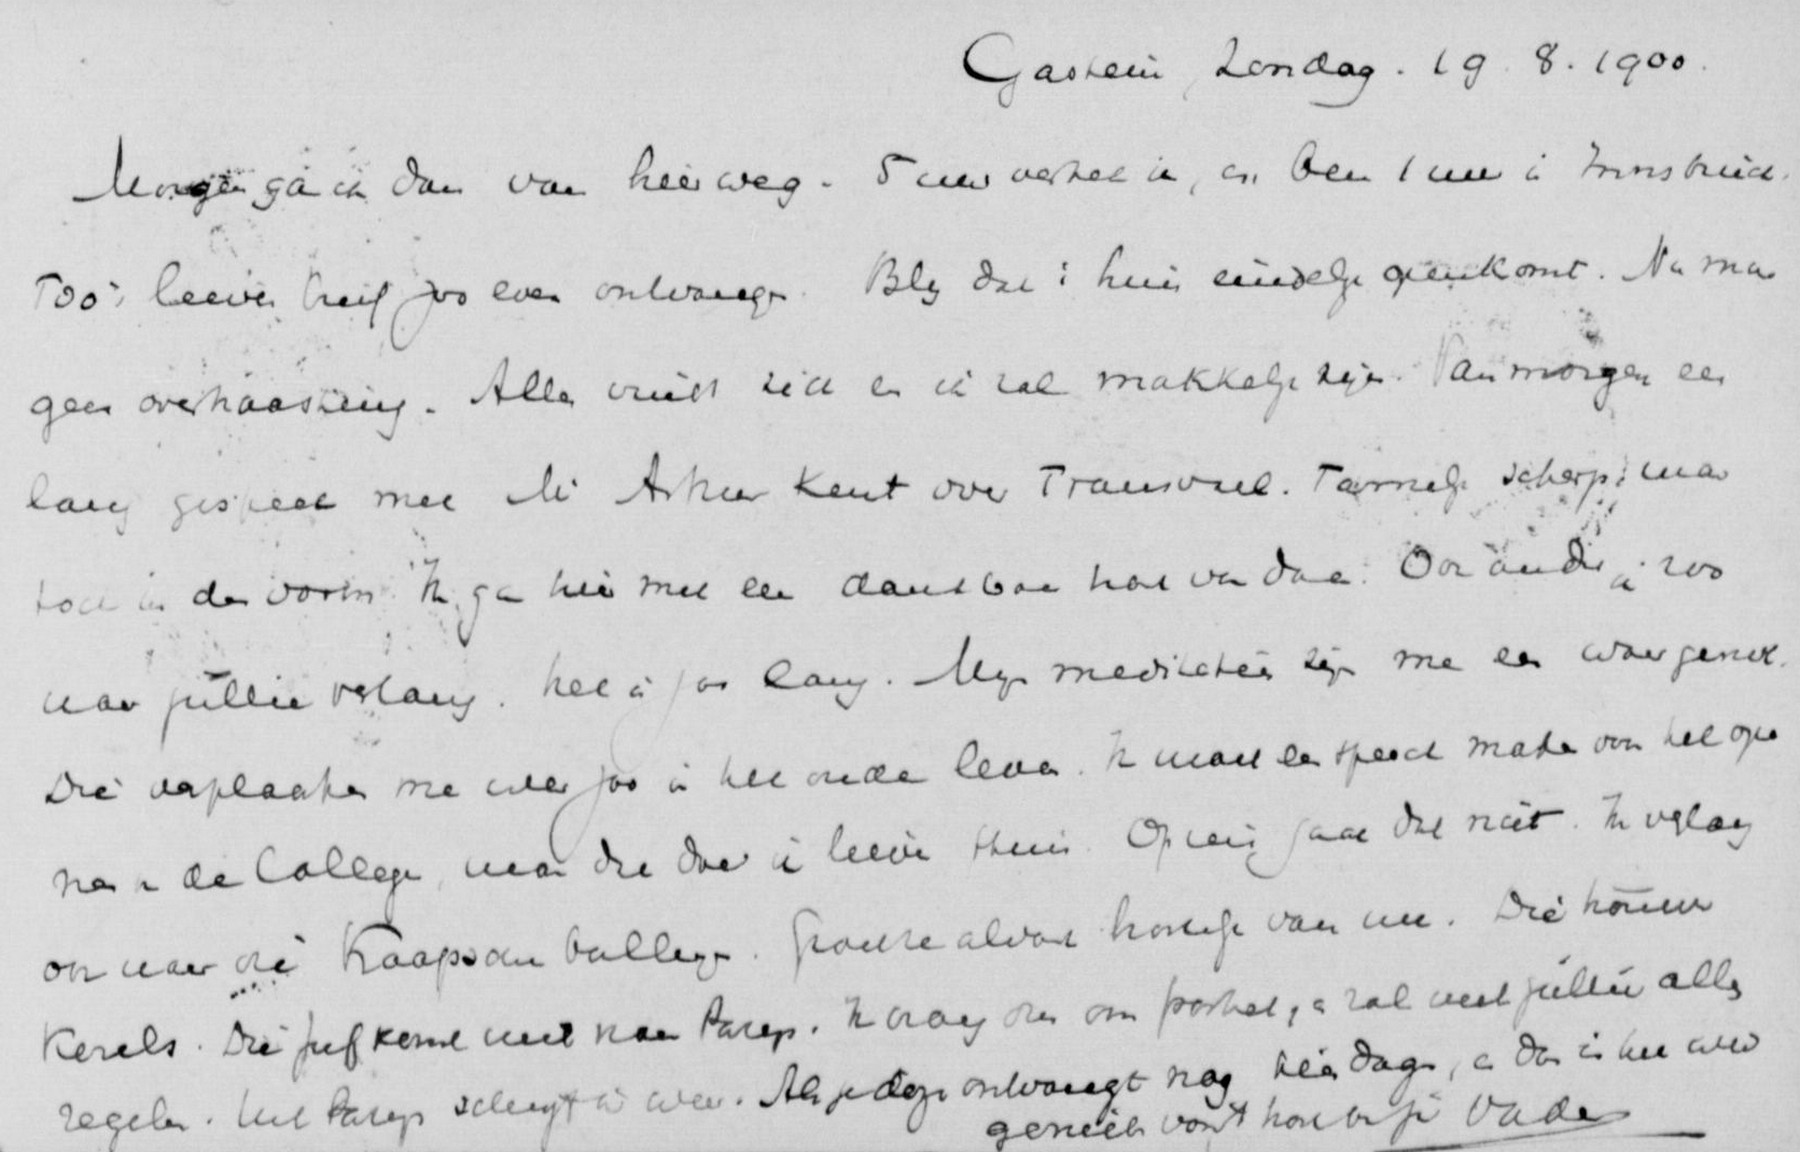 Gastein, Zondag. 19. 8. 1900.
Morgen ga ik dan van hier weg. 5 uur vertrek ik, en ben 1 uur in Innsbruck.
Too's lieven brief zoo even ontvangen. Bly dat i huis eindelyk gereed komt. Nu maar
geen overhaasting. Alles vindt zich en ik zal makkelyk zyn. Van morgen een
lang gesprek met Mr Arthur Kent over Transvaal. Tamelyk scherp, maar
toch in den vorm. Ik ga hier met een dankbaar hart van daan. Ook omdat ik zoo
naar jullie verlang. Het is zoo lang. Myn meditatiën zyn me een waar genot.
Die verplaatsen me weer zoo in het oude leven. Ik moet een speech maken voor het
van de College, maar die doe ik liever thuis. Op reis gaat dat niet. Ik verlang
ook naar die Kaapsche collega. Groet ze alvast hartelyk van me. Die
Kerels. Die juf komt niet naar Parys. Ik vraag om portret, en zal met jullie alles
regelen. Uit Parys schryf ik weer. Als je deze ontvangt nog tien dagen, en dan is het weer
genieten voor't hart van je Vader